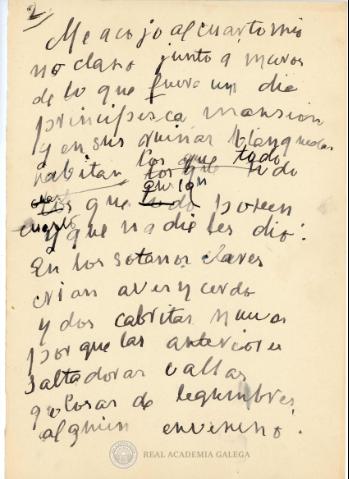 2
Me acojo al cuarto mio
no claro junto a muros
de lo que fuera un dia
principesca mansion
y en sus ruinas blanqueadas
habitan los que todo
los que todo poseen
y que nadie les dió.
En los sotanos claves
crian aves y cerdo
y dos cabritas nuevas
porque las anteriores
saltadoras vallas
golosas de legumbres
alguien envenenó.
REAL ACADEMIA GALEGA